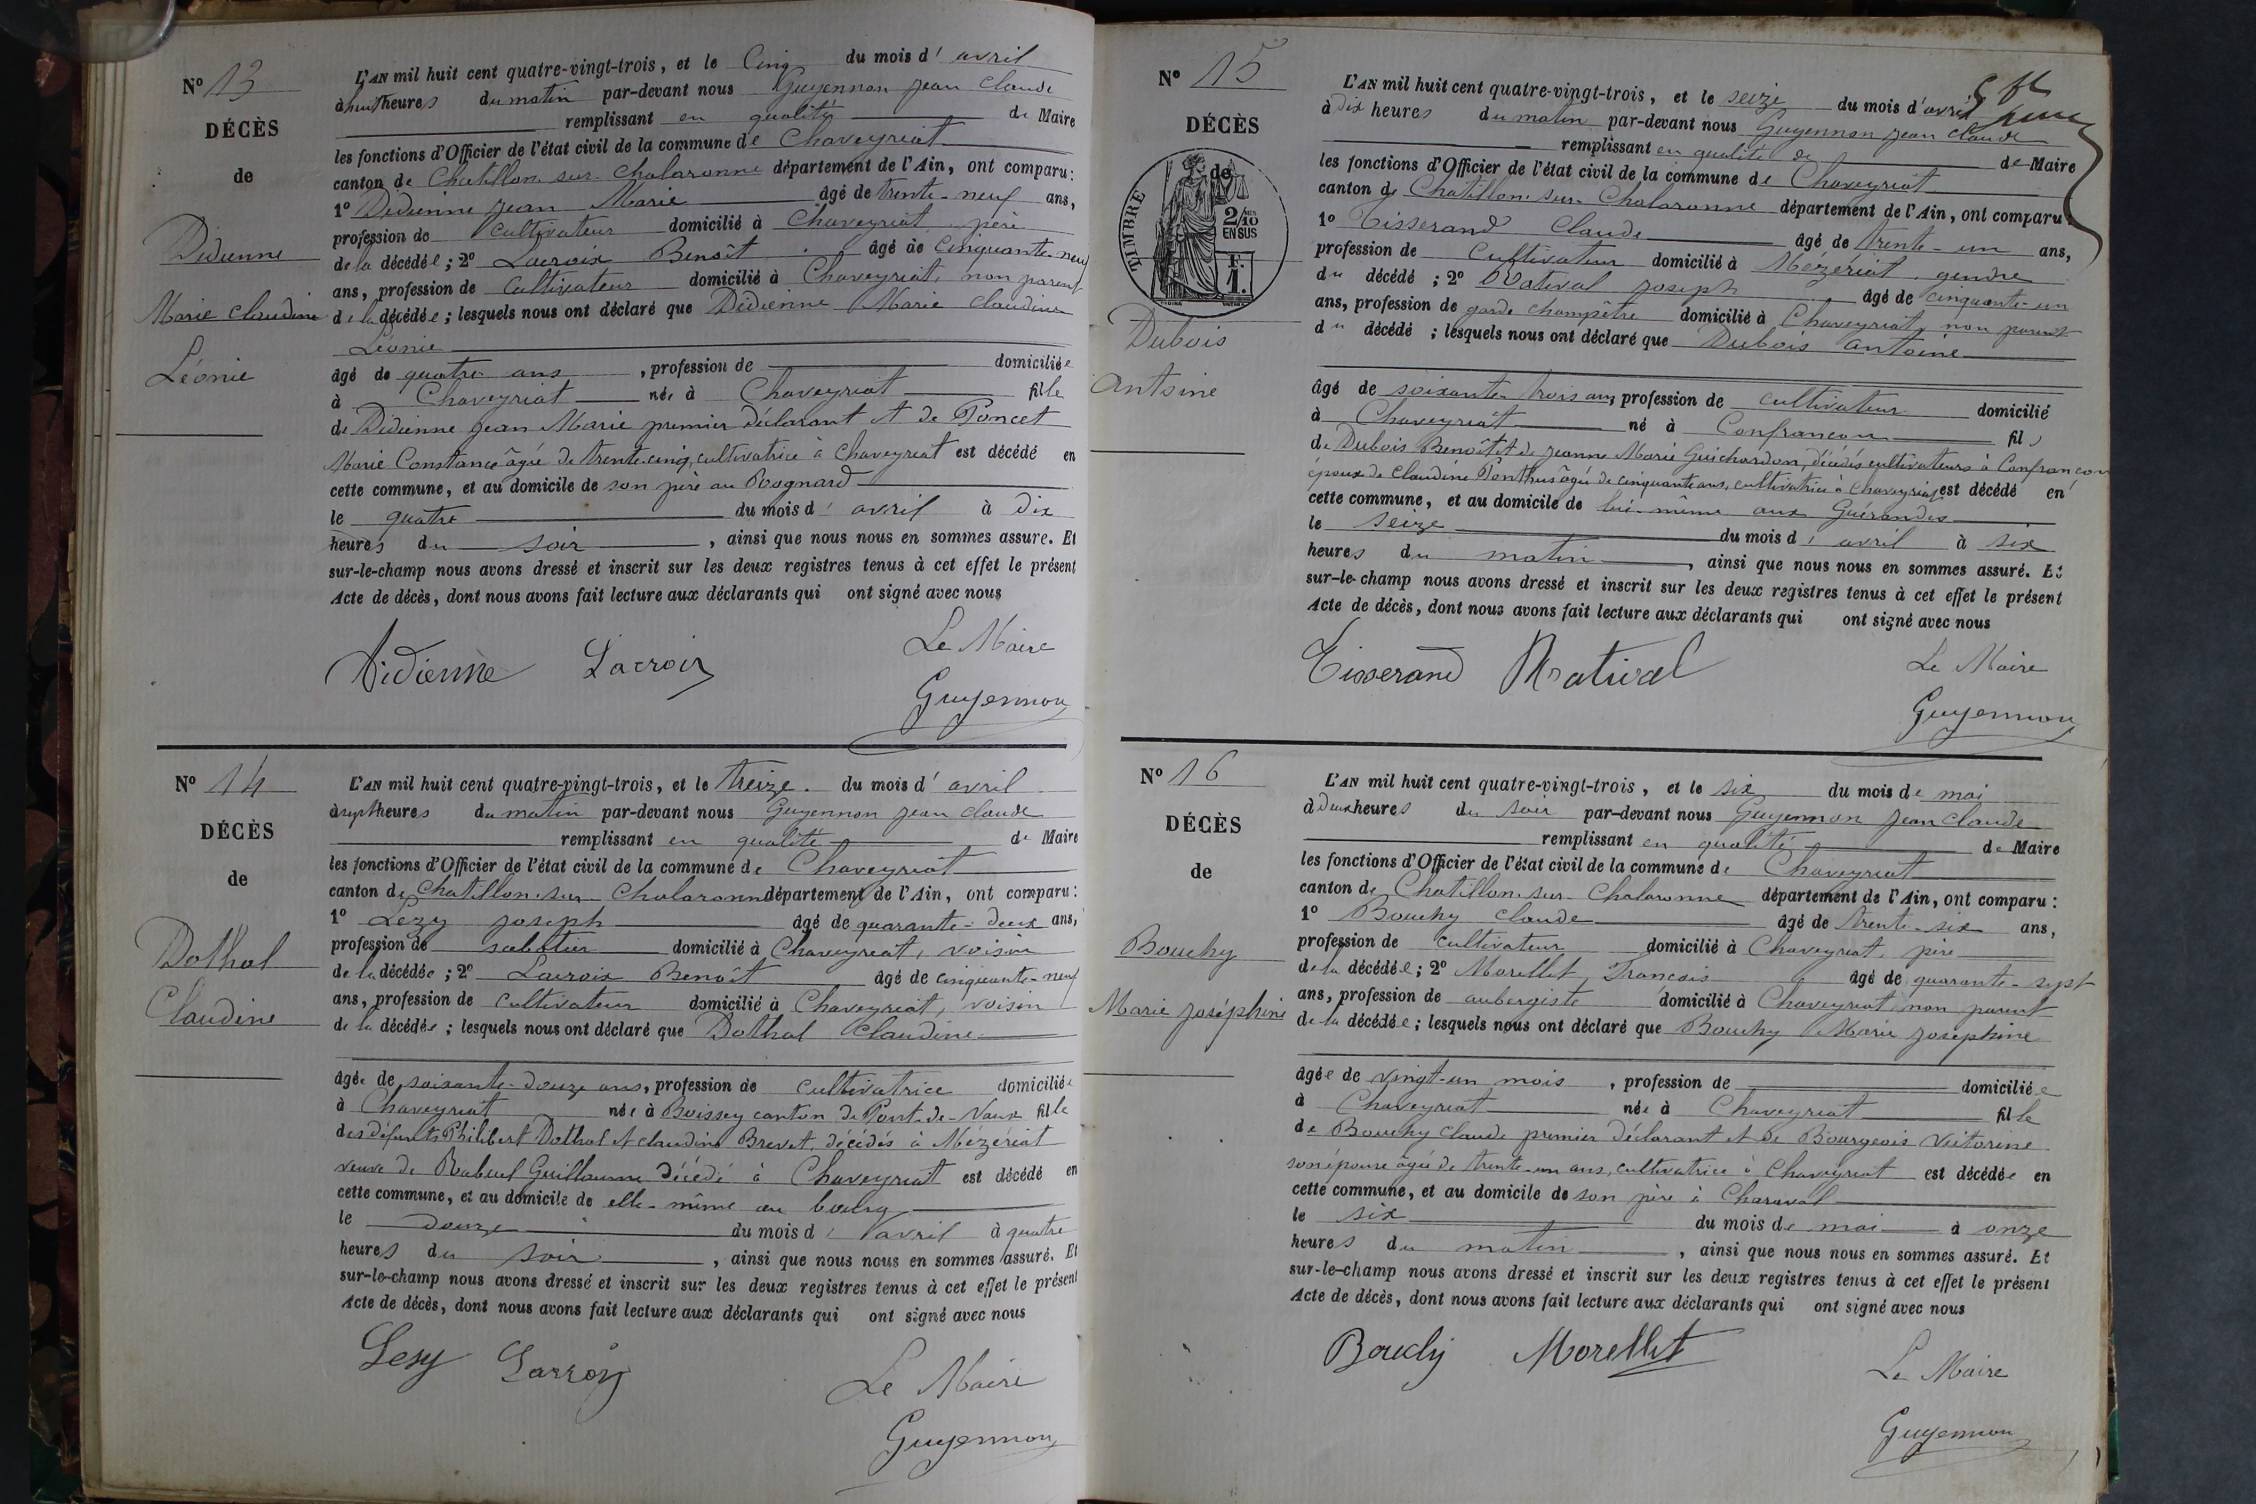 N° 13
DÉCÈS
de
Didienne
Marie Claudine
Léonie
L'AN mil huit cent quatre-vingt-trois, et le Cinq du mois d'avril
à huit heures du matin par-devant nous Guyennon Jean Claude
remplissant en qualité de Maire
les fonctions d'Officier de l'état civil de la commune de Chaveyriat
canton de Chatillon-sur-Chalaronne département de l'Ain, ont comparu :
1° Didienne Jean Marie âgé de trente-neuf ans,
profession de cultivateur domicilié à Chaveyriat, père
de la décédée ; 2° Lacroix Benoît âgé de cinquante-neuf
ans, profession de cultivateur domicilié à Chaveyriat, non parent
de la décédée ; lesquels nous ont déclaré que Didienne Marie Claudine
Léonie
âgé de quatre ans, profession de domiciliée
à Chaveyriat née à Chaveyriat fille
de Didienne Jean Marie premier déclarant et de Poncet
Marie Constance âgée de trente-cinq, cultivatrice à Chaveyriat est décédé en
cette commune, et au domicile de son père au Rognard
le quatre du mois d'avril à dix
heures du soir, ainsi que nous nous en sommes assuré. Et
sur-le-champ nous avons dressé et inscrit sur les deux registres tenus à cet effet le présent
Acte de décès, dont nous avons fait lecture aux déclarants qui ont signé avec nous
Didienne Lacroix Le Maire
Guyennon
N° 14
DÉCÈS
de
Dothal
Claudine
L'AN mil huit cent quatre-vingt-trois, et le treize du mois d'avril
à sept heures du matin par-devant nous Guyennon Jean Claude
remplissant en qualité de Maire
les fonctions d'Officier de l'état civil de la commune de Chaveyriat
canton de Chatillon-sur-Chalaronne département de l'Ain, ont comparu :
1° Lezy Joseph âgé de quarante-deux ans,
profession de sabotier domicilié à Chaveyriat, voisin
de la décédée ; 2° Lacroix Benoît âgé de cinquante-neuf
ans, profession de cultivateur domicilié à Chaveyriat, voisin
de la décédée ; lesquels nous ont déclaré que Dothal Claudine
âgée de soixante-douze ans, profession de cultivatrice domiciliée
à Chaveyriat née à Boissey canton de Pont-de-Vaux fille
des défunts Philibert Dothal et Claudine Brevet, décédés à Mézériat
veuve de Rabuel Guillaume décédé à Chaveyriat est décédé en
cette commune, et au domicile de elle-même au bourg
le douze du mois d'avril à quatre
heures du soir, ainsi que nous nous en sommes assuré. Et
sur-le-champ nous avons dressé et inscrit sur les deux registres tenus à cet effet le présent
Acte de décès, dont nous avons fait lecture aux déclarants qui ont signé avec nous
Lesy Lacroix
Le Maire
Guyennon
N° 15
DÉCÈS
de
TIMBRE
2/10
EN SUS
F.
1.
Dubois
Antoine
L'AN mil huit cent quatre-vingt-trois, et le seize du mois d'avril
à dix heures du matin par-devant nous Guyennon Jean Claude
remplissant en qualité de de Maire
les fonctions d'Officier de l'état civil de la commune de Chaveyriat
canton de Chatillon-sur-Chalaronne département de l'Ain, ont comparu :
1° Tisserand Claude âgé de trente-un ans,
profession de cultivateur domicilié à Mézériat, gendre
du décédé ; 2° Matival Joseph âgé de cinquante-un
ans, profession de garde champêtre domicilié à Chaveyriat, non parent
du décédé ; lesquels nous ont déclaré que Dubois Antoine
âgé de soixante-trois ans, profession de cultivateur domicilié
à Chaveyriat né à Confrançon fils
de Dubois Benoît et de Jeanne Marie Guichardon, décédés cultivateurs à Confrançon
époux de Claudine Ponthus âgée de cinquante ans, cultivatrice à Chaveyriat est décédé en
cette commune, et au domicile de lui-même aux Guérandes
le seize du mois d'avril à six
heures du matin, ainsi que nous nous en sommes assuré. Et
sur-le-champ nous avons dressé et inscrit sur les deux registres tenus à cet effet le présent
Acte de décès, dont nous avons fait lecture aux déclarants qui ont signé avec nous
Tisserand Matival Le Maire
Guyennon
N° 16
DÉCÈS
de
Bouchy
Marie Joséphine
L'AN mil huit cent quatre-vingt-trois, et le six du mois de mai
à deux heures du soir par-devant nous Guyennon Jean Claude
remplissant en qualité de Maire
les fonctions d'Officier de l'état civil de la commune de Chaveyriat
canton de Chatillon-sur-Chalaronne département de l'Ain, ont comparu :
1° Bouchy Claude âgé de trente-six ans,
profession de cultivateur domicilié à Chaveyriat, père
de la décédée ; 2° Morellet François âgé de quarante-sept
ans, profession de aubergiste domicilié à Chaveyriat, non parent
de la décédée ; lesquels nous ont déclaré que Bouchy Marie Joséphine
âgée de vingt-un mois, profession de domiciliée
à Chaveyriat née à Chaveyriat fille
de Bouchy Claude premier déclarant et de Bourgeois Victorine
son épouse âgée de trente-un ans, cultivatrice à Chaveyriat est décédée en
cette commune, et au domicile de son père à Charaval
le six du mois de mai à onze
heures du matin, ainsi que nous nous en sommes assuré. Et
sur-le-champ nous avons dressé et inscrit sur les deux registres tenus à cet effet le présent
Acte de décès, dont nous avons fait lecture aux déclarants qui ont signé avec nous
Bouchy Morellet
Le Maire
Guyennon